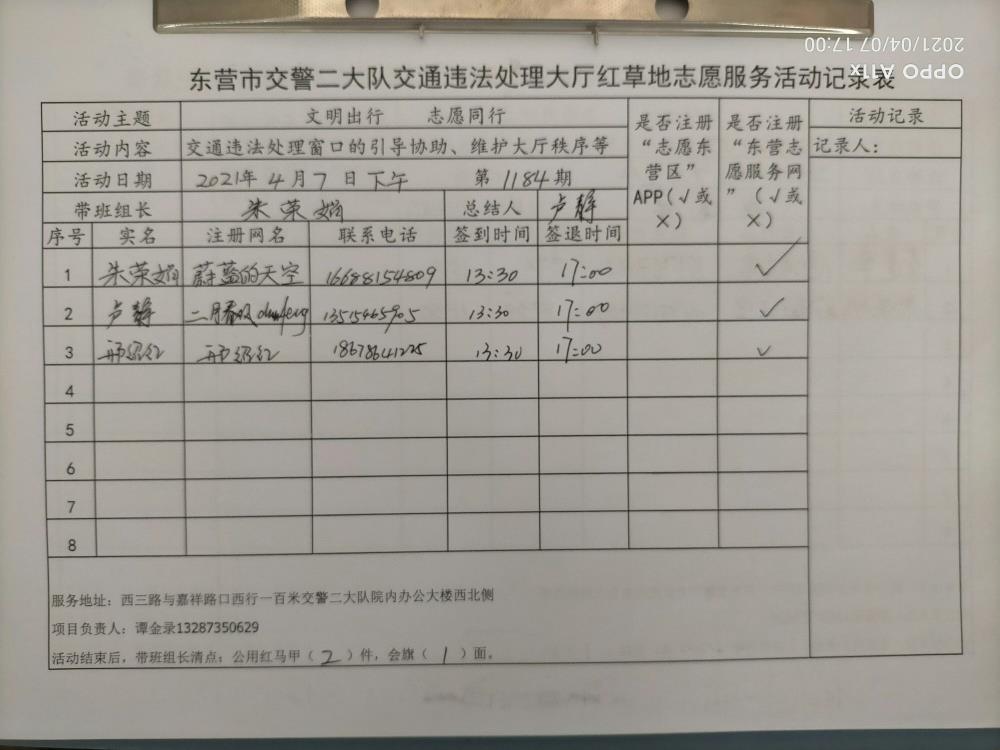 2021/04/07 17:00
OPPO A11x
东营市交警二大队交通违法处理大厅红草地志愿服务活动记录表
活动主题 文明出行 志愿同行 是否注册“志愿东营区”APP(√或×) 是否注册“东营志愿服务网”(√或×) 活动记录
活动内容 交通违法处理窗口的引导协助、维护大厅秩序等 记录人:
活动日期 2021年4月7日下午 第1184期
带班组长 朱荣娟 总结人 卢静
序号 实名 注册网名 联系电话 签到时间 签退时间
1 朱荣娟 蔚蓝的天空 16688154809 13:30 17:00 √
2 卢静 二月春风 13515465905 13:30 17:00 √
3 18678641225 13:30 17:00 √
4
5
6
7
8
服务地址: 西三路与嘉祥路口西行一百米交警二大队院内办公大楼西北侧
项目负责人: 谭金录13287350629
活动结束后,带班组长清点: 公用红马甲(2)件,会旗(1)面。